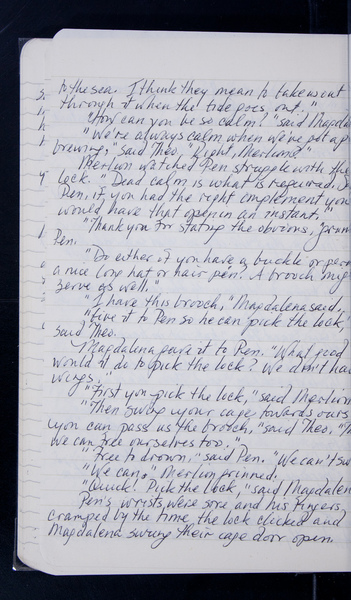 to the sea. I think they mean to take us out
through it when the tide goes out."
"How can you be so calm?" said Magdal
"We're always calm when we've got a p
brewing," said Theo. "Right, Merlion?"
Merlion watched Pen struggle with the
lock. "Dead calm is what is required.
Pen, if you had the right implement you
would have that open in an instant."
"Thank you for stating the obvious,"
Pen.
"Do either of you have a buckle or per
a nice long hat or hair pin? A brooch mig
serve as well."
"I have this brooch," Magdalena said,
"Give it to Pen so he can pick the lock,"
said Theo.
Magdalena gave it to Pen. "What good
would it do to pick the lock? We don't ha
wings."
"First you pick the lock," said Merlion
"Then swing your cage towards ours
you can pass us the brooch," said Theo. "Th
we can free ourselves too."
"Free to drown," said Pen. "We can't sw
"We can," Merlion grinned.
"Quick! Pick the lock," said Magdalen
Pen's wrists were sore and his fingers
cramped by the time the lock clicked and
Magdalena swung their cage door open.